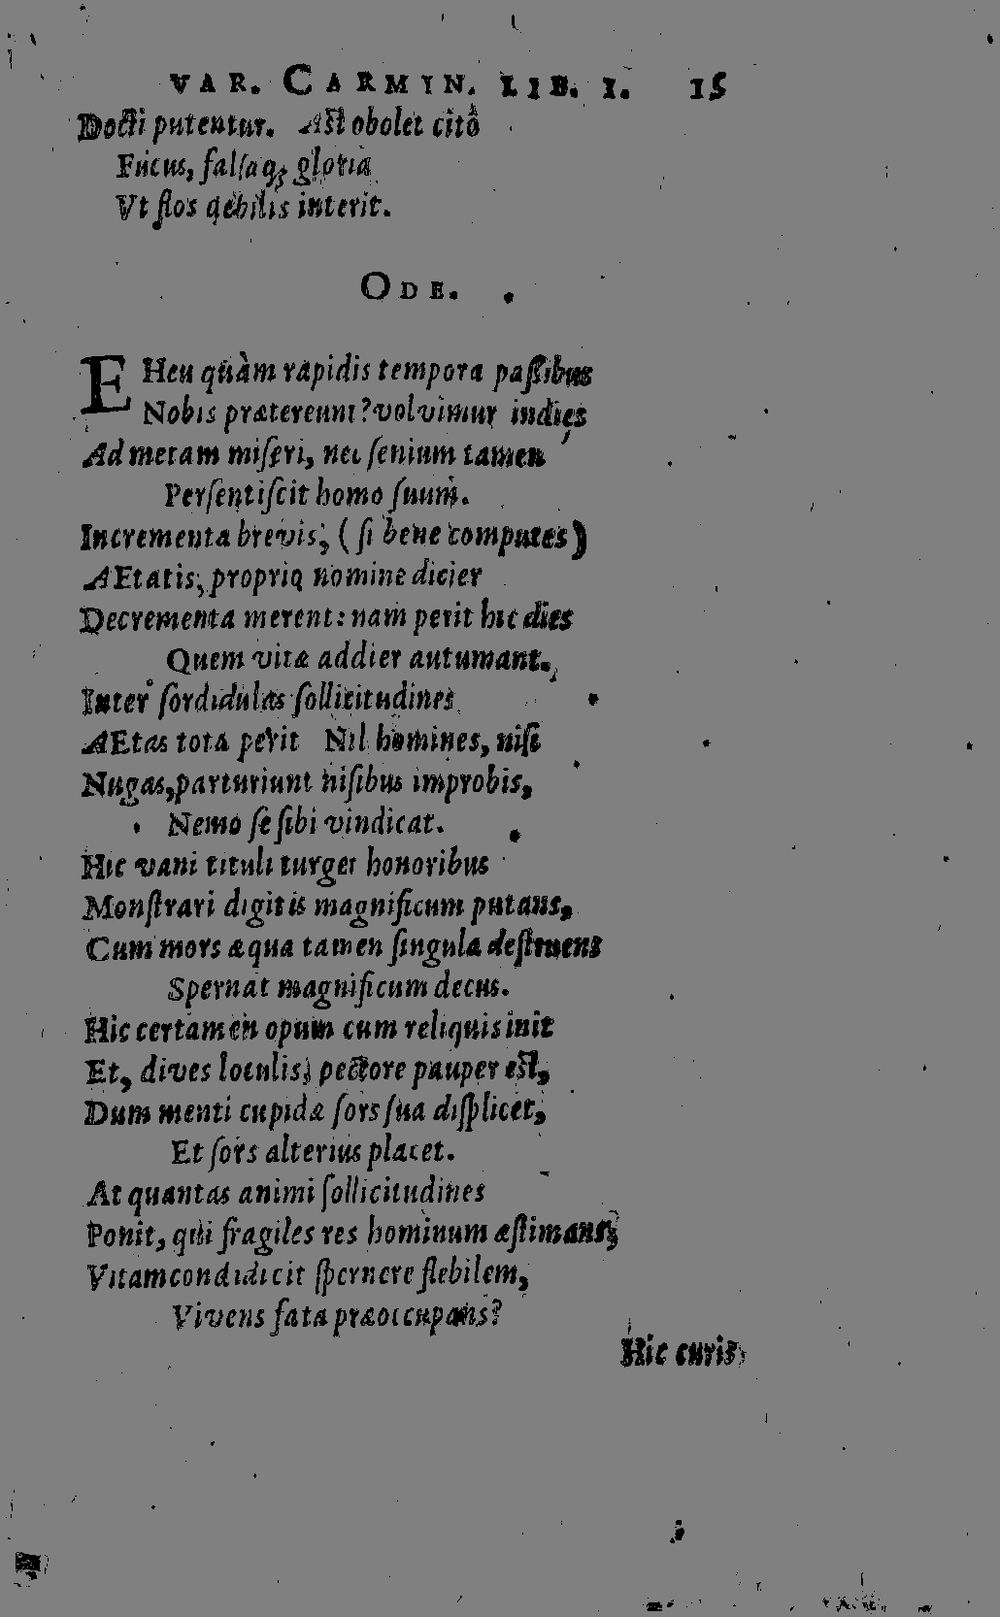 VAR. CARMIN. LIB. I. 15
Docti putentur. Ast obolet citò
Fucus, falsaq; gloria
Vt flos debilis interit.
ODE.
EHeu quàm rapidis tempora passibus
Nobis prætereunt? volvimur indies
Ad metam miseri, nec senium tamen
Persentiscit homo suum.
Incrementa brevis, (si bene computes)
AEtatis, proprio nomine dicier
Decrementa merent: nam perit hic dies
Quem vitæ addier autumant.
Inter sordidulas sollicitudines
AEtas tota perit Nil homines, nisi
Nugas, parturiunt nisibus improbis,
Nemo se sibi vindicat.
Hic vani tituli turget honoribus
Monstrari digitis magnificum putans,
Cum mors æqua tamen singula destruens
Spernat magnificum decus.
Hic certamen opum cum reliquis init
Et, dives loculis, pectore pauper est,
Dum menti cupidæ sors sua displicet,
Et sors alterius placet.
At quantas animi sollicitudines
Ponit, qui fragiles res hominum æstimans,
Vitam condidicit spernere flebilem,
Vivens fata præoccupans?
Hic curis